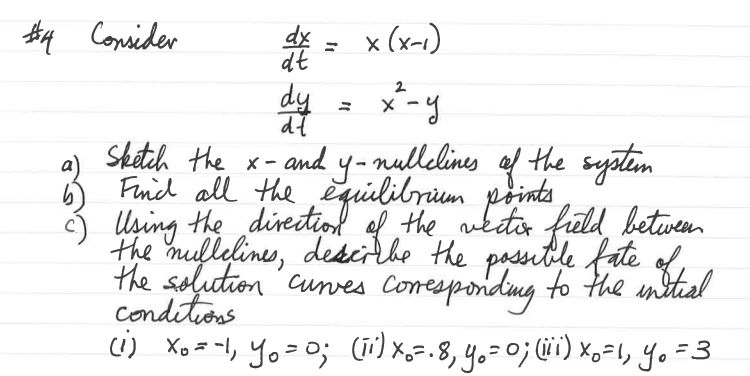 #4 Consider dx/dt = x(x-1)
dy/dt = x² - y
a) Sketch the x- and y-nullclines of the system
b) Find all the equilibrium points
c) Using the direction of the vector field between
the nullclines, describe the possible fate of
the solution curves corresponding to the initial
conditions
(i) x₀=-1, y₀=0; (ii) x₀=.8, y₀=0; (iii) x₀=1, y₀=3